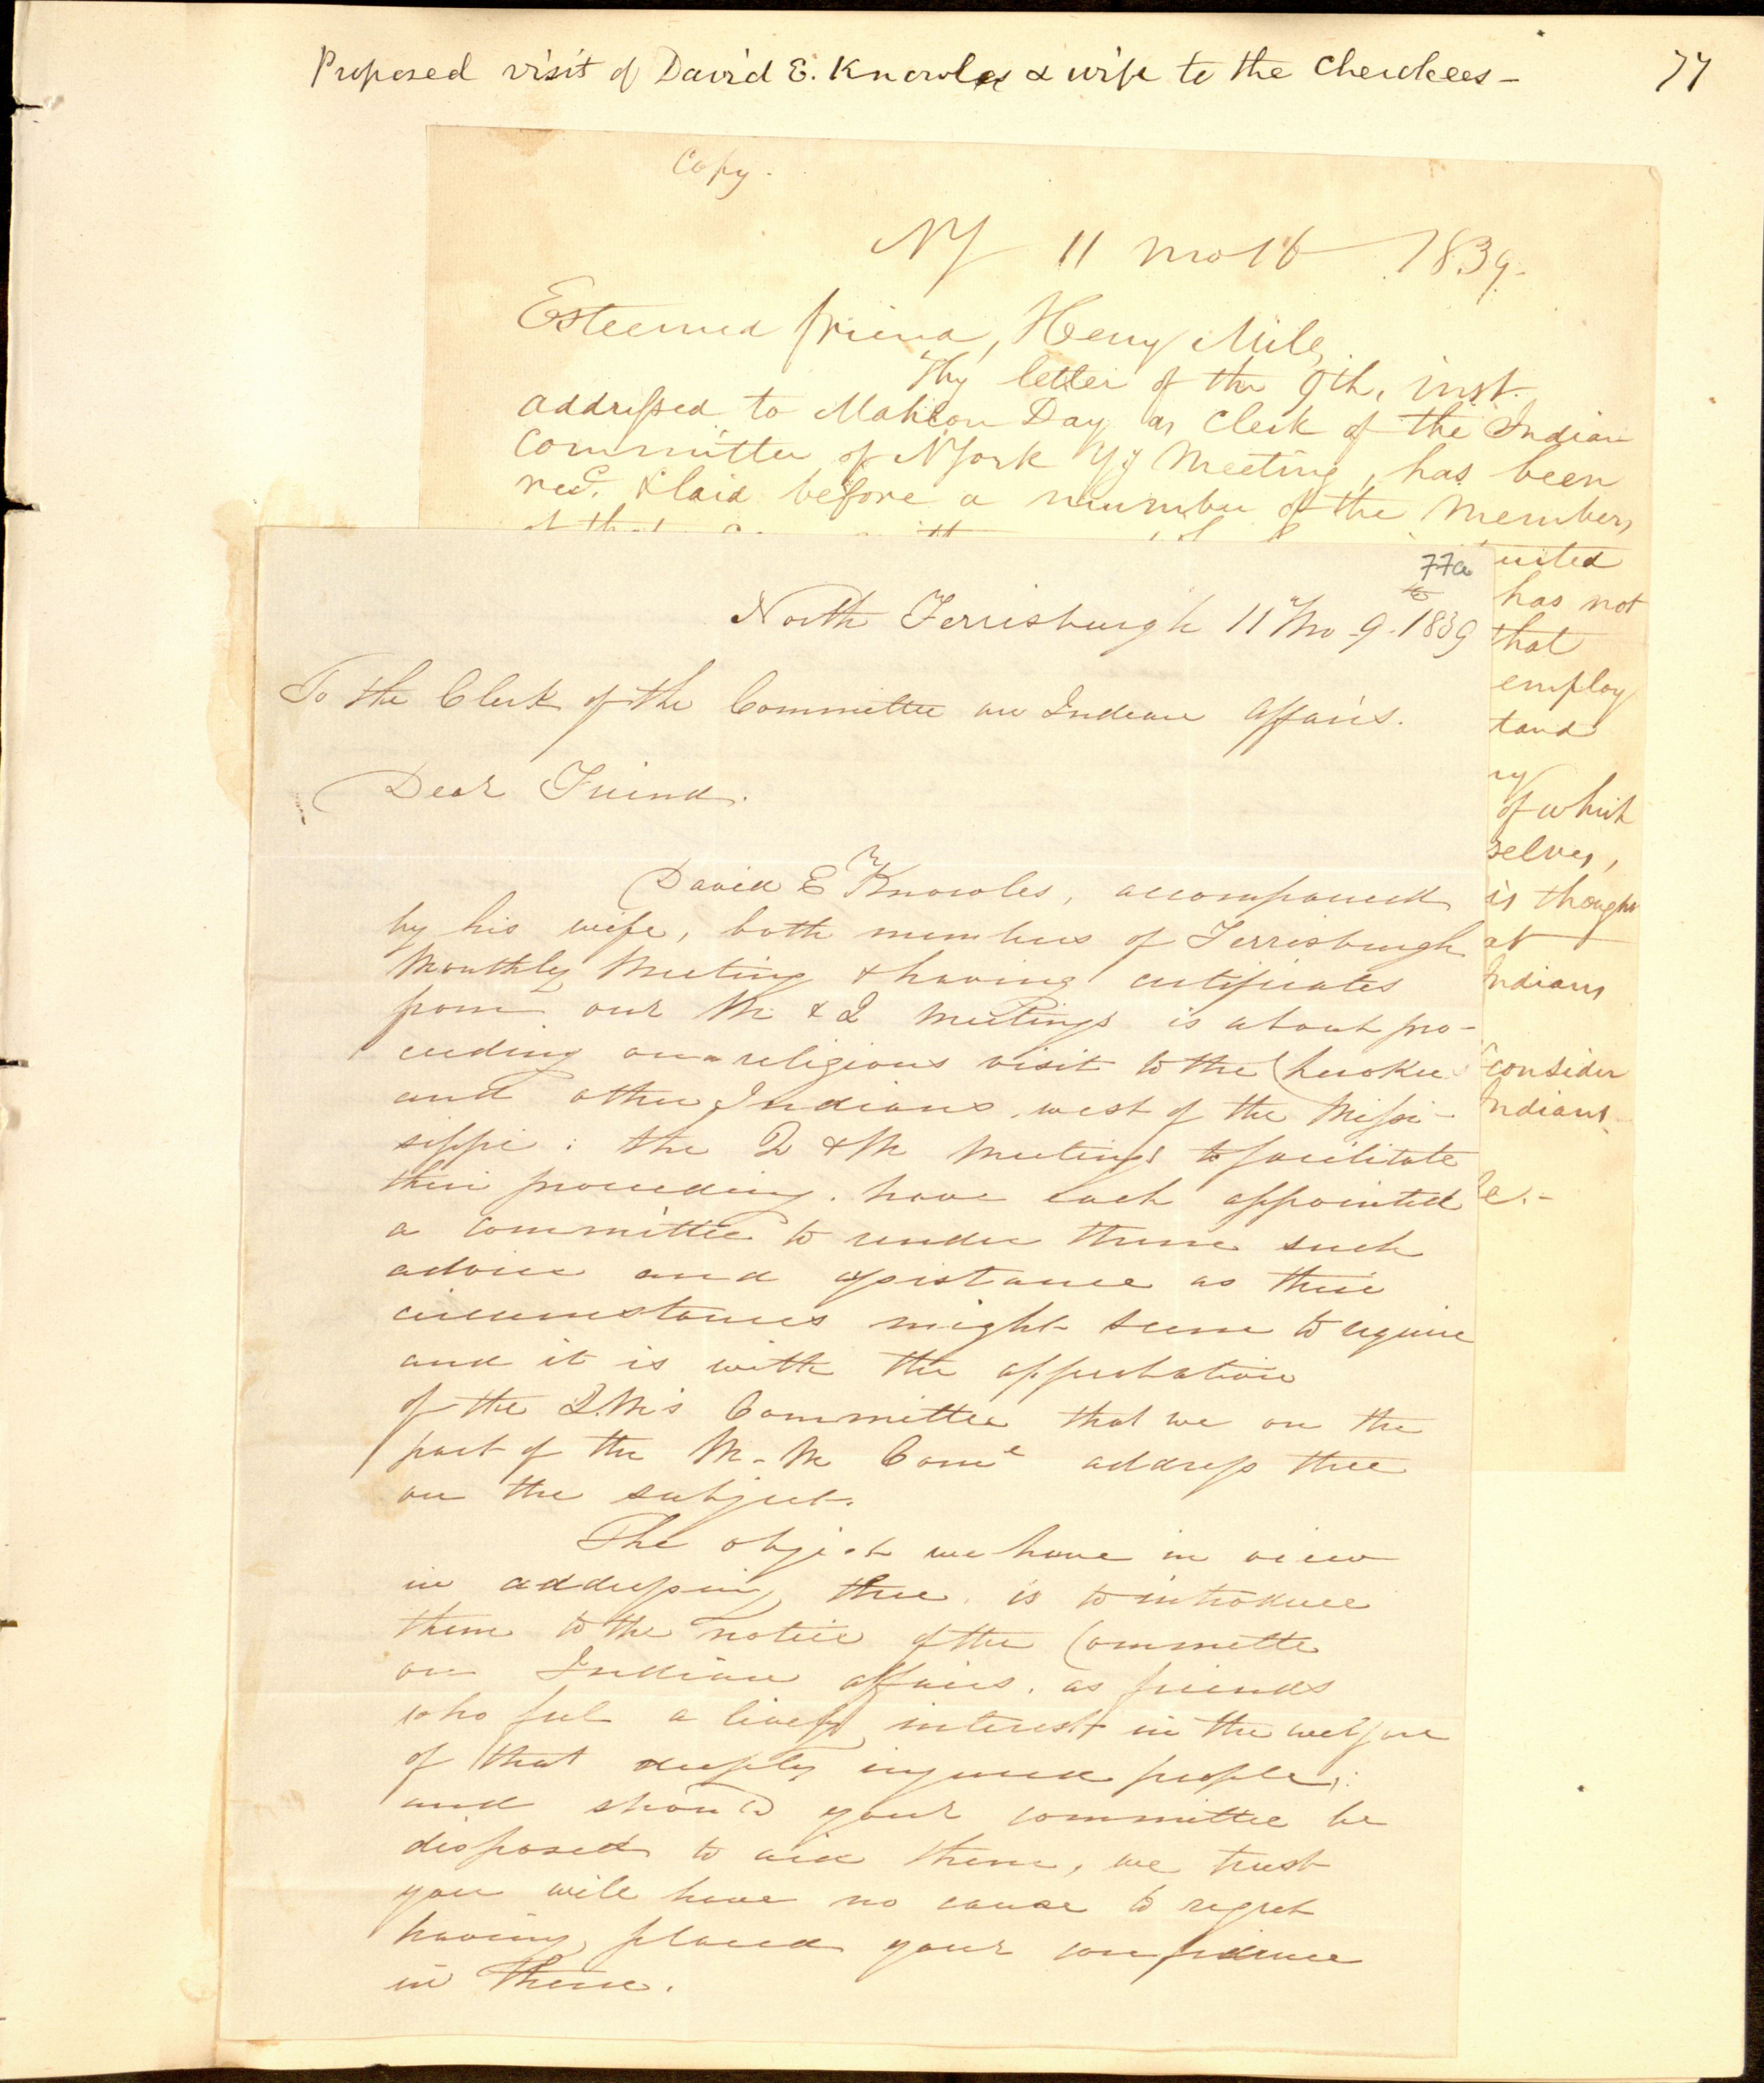 Proposed visit of David E. Knowles & wife to the Cherokees - 77
Copy.
NY 11 mo 16 1839.
Esteemed friend, Henry Miles,
Thy letter of the 9th, inst.
addressed to Mahlon Day as Clerk of the Indian
Committee of NYork Yy Meeting, has been
recd. & laid before a number of the Members
of that
77a
North Ferrisburgh 11 Mo 9. 1839
To the Clerk of the Committee on Indian Affairs.
Dear Friend.
David E Knowles, accompanied
by his wife, both members of Ferrisburgh
Monthly Meeting & having certificates
from our M & Q Meetings is about pro-
ceeding on a religious visit to the Cherokees
and other Indians west of the Missi-
sippi: the Q & M Meetings to facilitate
their proceeding. have each appointed
a committee to render them such
advice and assistance as their
circumstances might seem to require
and it is with the approbation
of the Q.M's Committee that we on the
part of the M. M Come address thee
on the subject.
The object we have in view
in addressing thee. is to introduce
them to the notice of the Committe
on Indian affairs. as friends
who feel a lively interest in the welfare
of that deeply injured people;
and should your committee be
disposed to aid them, we trust
you will have no cause to regret
having placed your confidence
in them.
uited
has not
that
employ
tand
ry
of which
selves,
is thought
at
Indians
consider
Indians
e.-